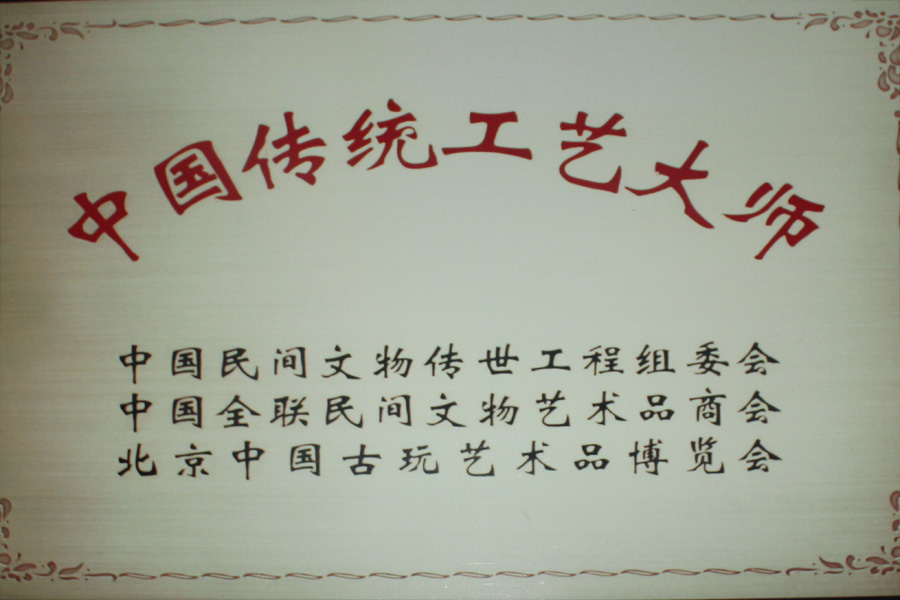 中国传统工艺大师
中国民间文物传世工程组委会
中国全联民间文物艺术品商会
北京中国古玩艺术品博览会